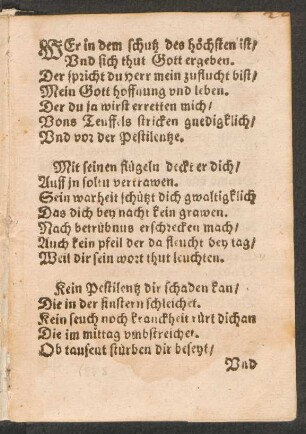 WEr in dem schutz des höchsten ist/
Vnd sich thut Gott ergeben.
Der spricht du Herr mein zuflucht bist/
Mein Gott hoffnung vnd leben.
Der du ja wirst erretten mich/
Vons Teuffels stricken gnedigklich/
Vnd vor der Pestilentze.
Mit seinen flügeln deckt er dich/
Auff jn soltu vertrawen.
Sein warheit schützt dich gwaltigklich
Das dich bey nacht kein grawen.
Nach betrübnus erschrecken mach/
Auch kein pfeil der da fleucht bey tag/
Weil dir sein wort thut leuchten.
Kein Pestilentz dir schaden kan/
Die in der finstern schleichet.
Kein seuch noch kranckheit rürt dich an
Die im mittag vmbstreichet.
Ob tausent stürben dir beseyt/
Vnd